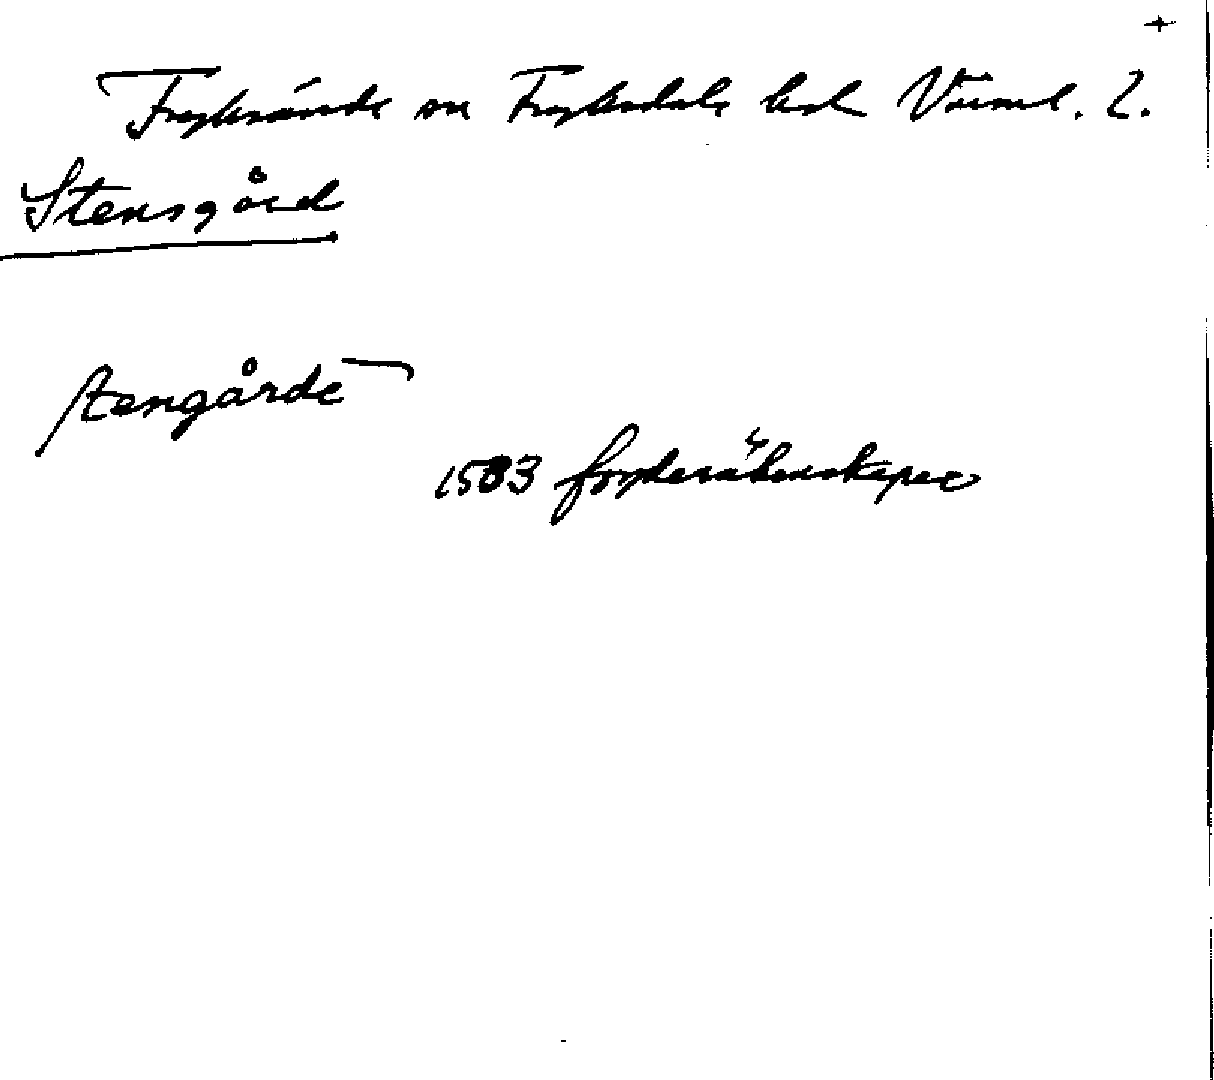 +
Fryksände sn Fryksdals hd Värml. L.
Stensgård
stengårde
1503 fogderäkenskaper